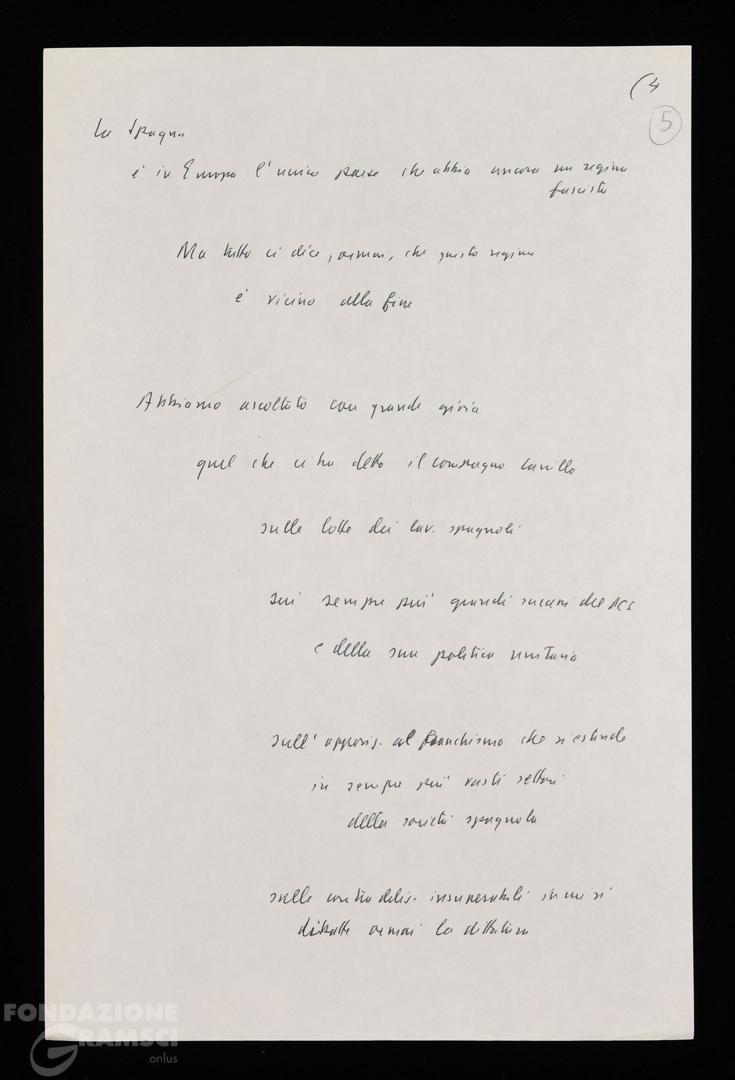 (4
5
La Spagna
è in Europa l'unico paese che abbia ancora un regime
fascista
Ma tutto ci dice, ormai, che questo regime
è vicino alla fine
Abbiamo ascoltato con grande gioia
quel che ci ha detto il compagno Carrillo
sulle lotte dei lav. spagnoli
sui sempre più grandi successi del PCS
e della sua politica unitaria
sull'opposiz. al franchismo che si estende
in sempre più vasti settori
della società spagnola
sulle contraddiz. insuperabili in cui si
dibatte ormai la dittatura
FONDAZIONE
GRAMSCI
onlus